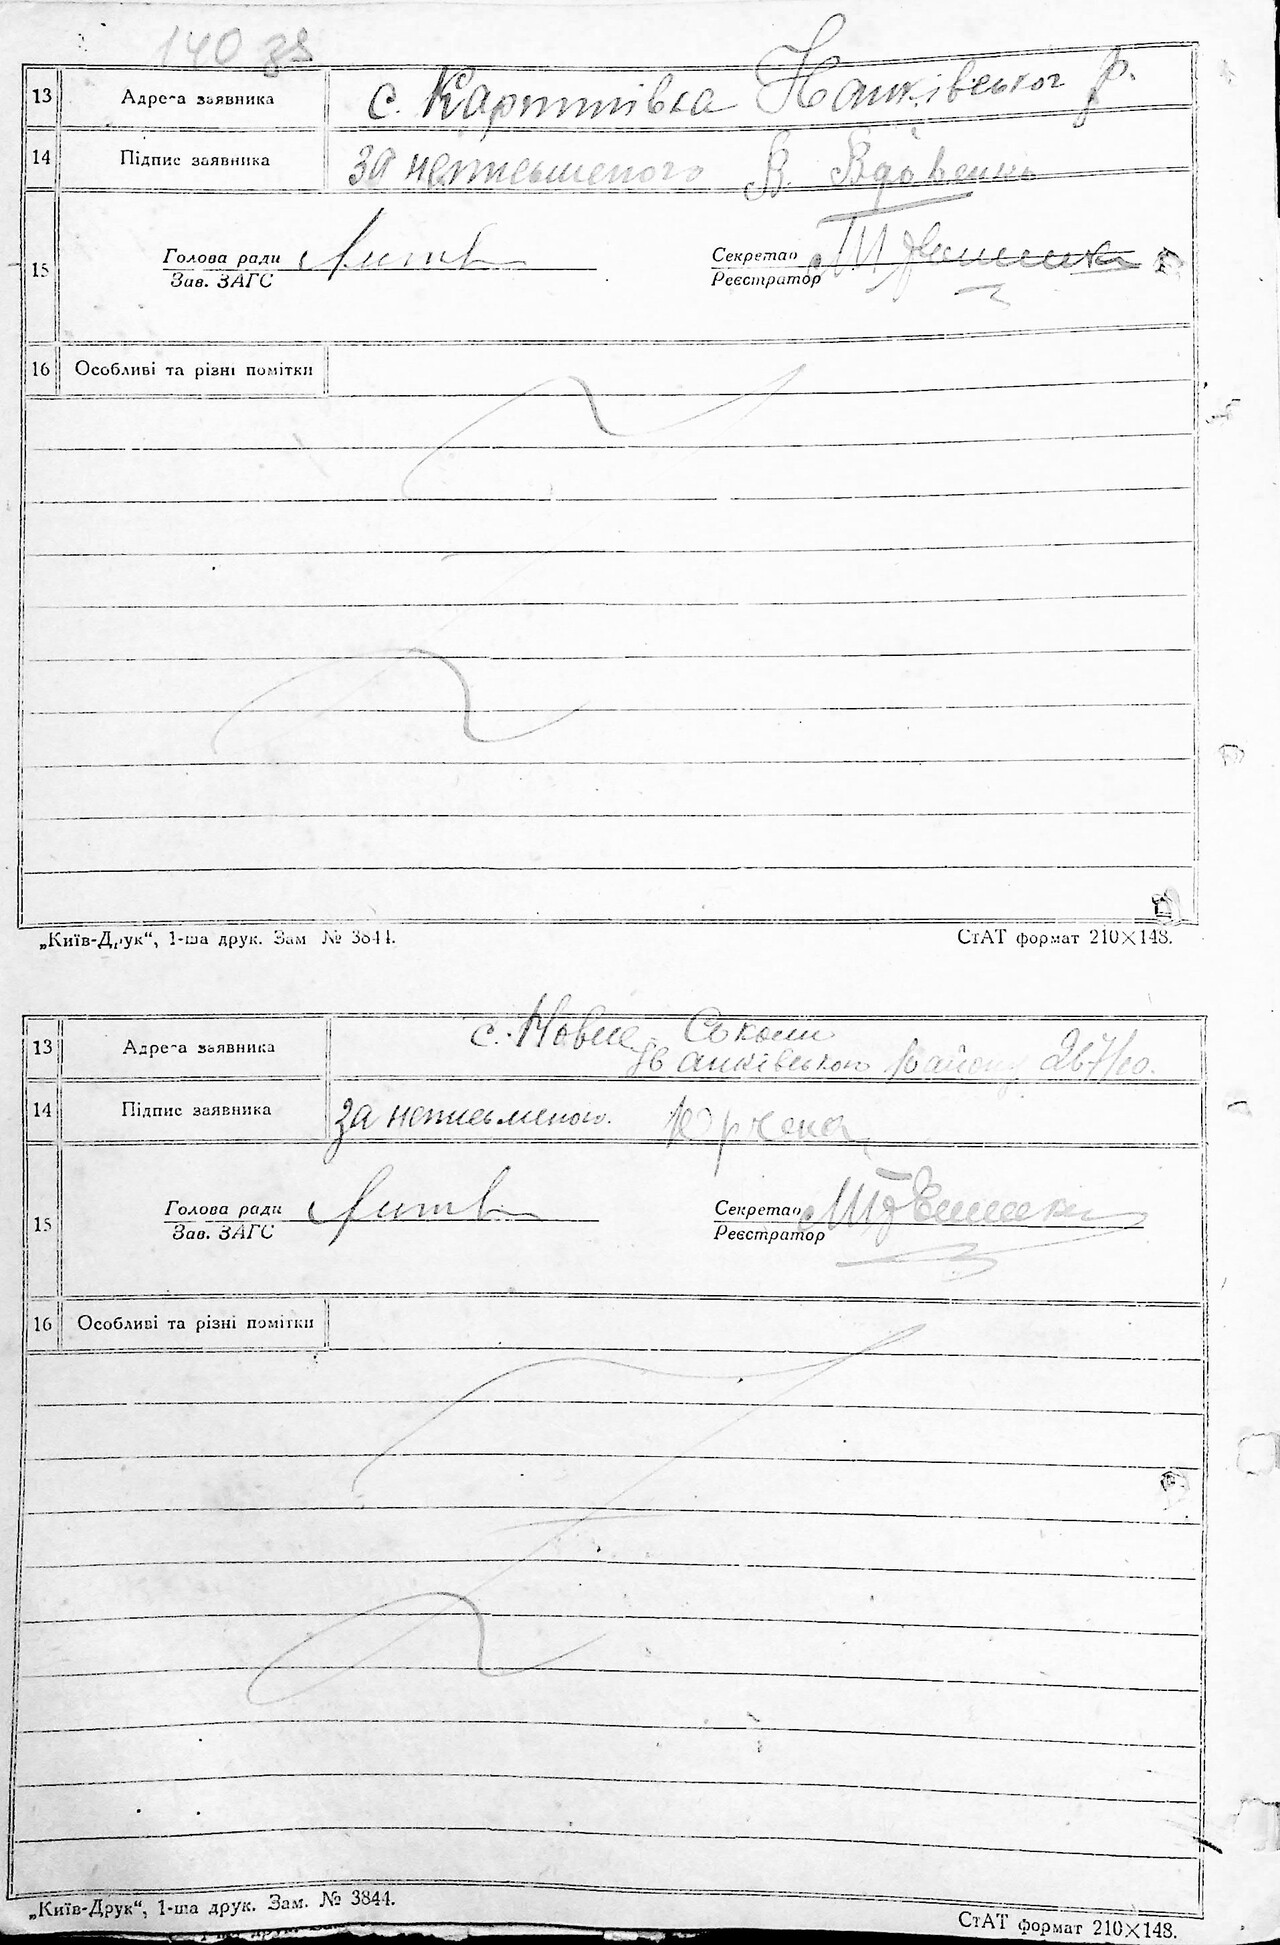 140 зв
13 Адреса заявника с. Карпилівка Іванківського р.
14 Підпис заявника за неписьменого В. Вдовенко
Голова ради Литв Секретар
15
Зав. ЗАГС Реєстратор
16 Особливі та різні помітки
„Київ-Друк“, 1-ша друк. Зам № 3844. СтАТ формат 210×148.
с. Нове Соколи
13 Адреса заявника
Іванківського району
14 Підпис заявника за неписьменого.
Голова ради Литв Секретар
15
Зав. ЗАГС Реєстратор
16 Особливі та різні помітки
„Київ-Друк“, 1-ша друк. Зам. № 3844.
СтАТ формат 210×148.